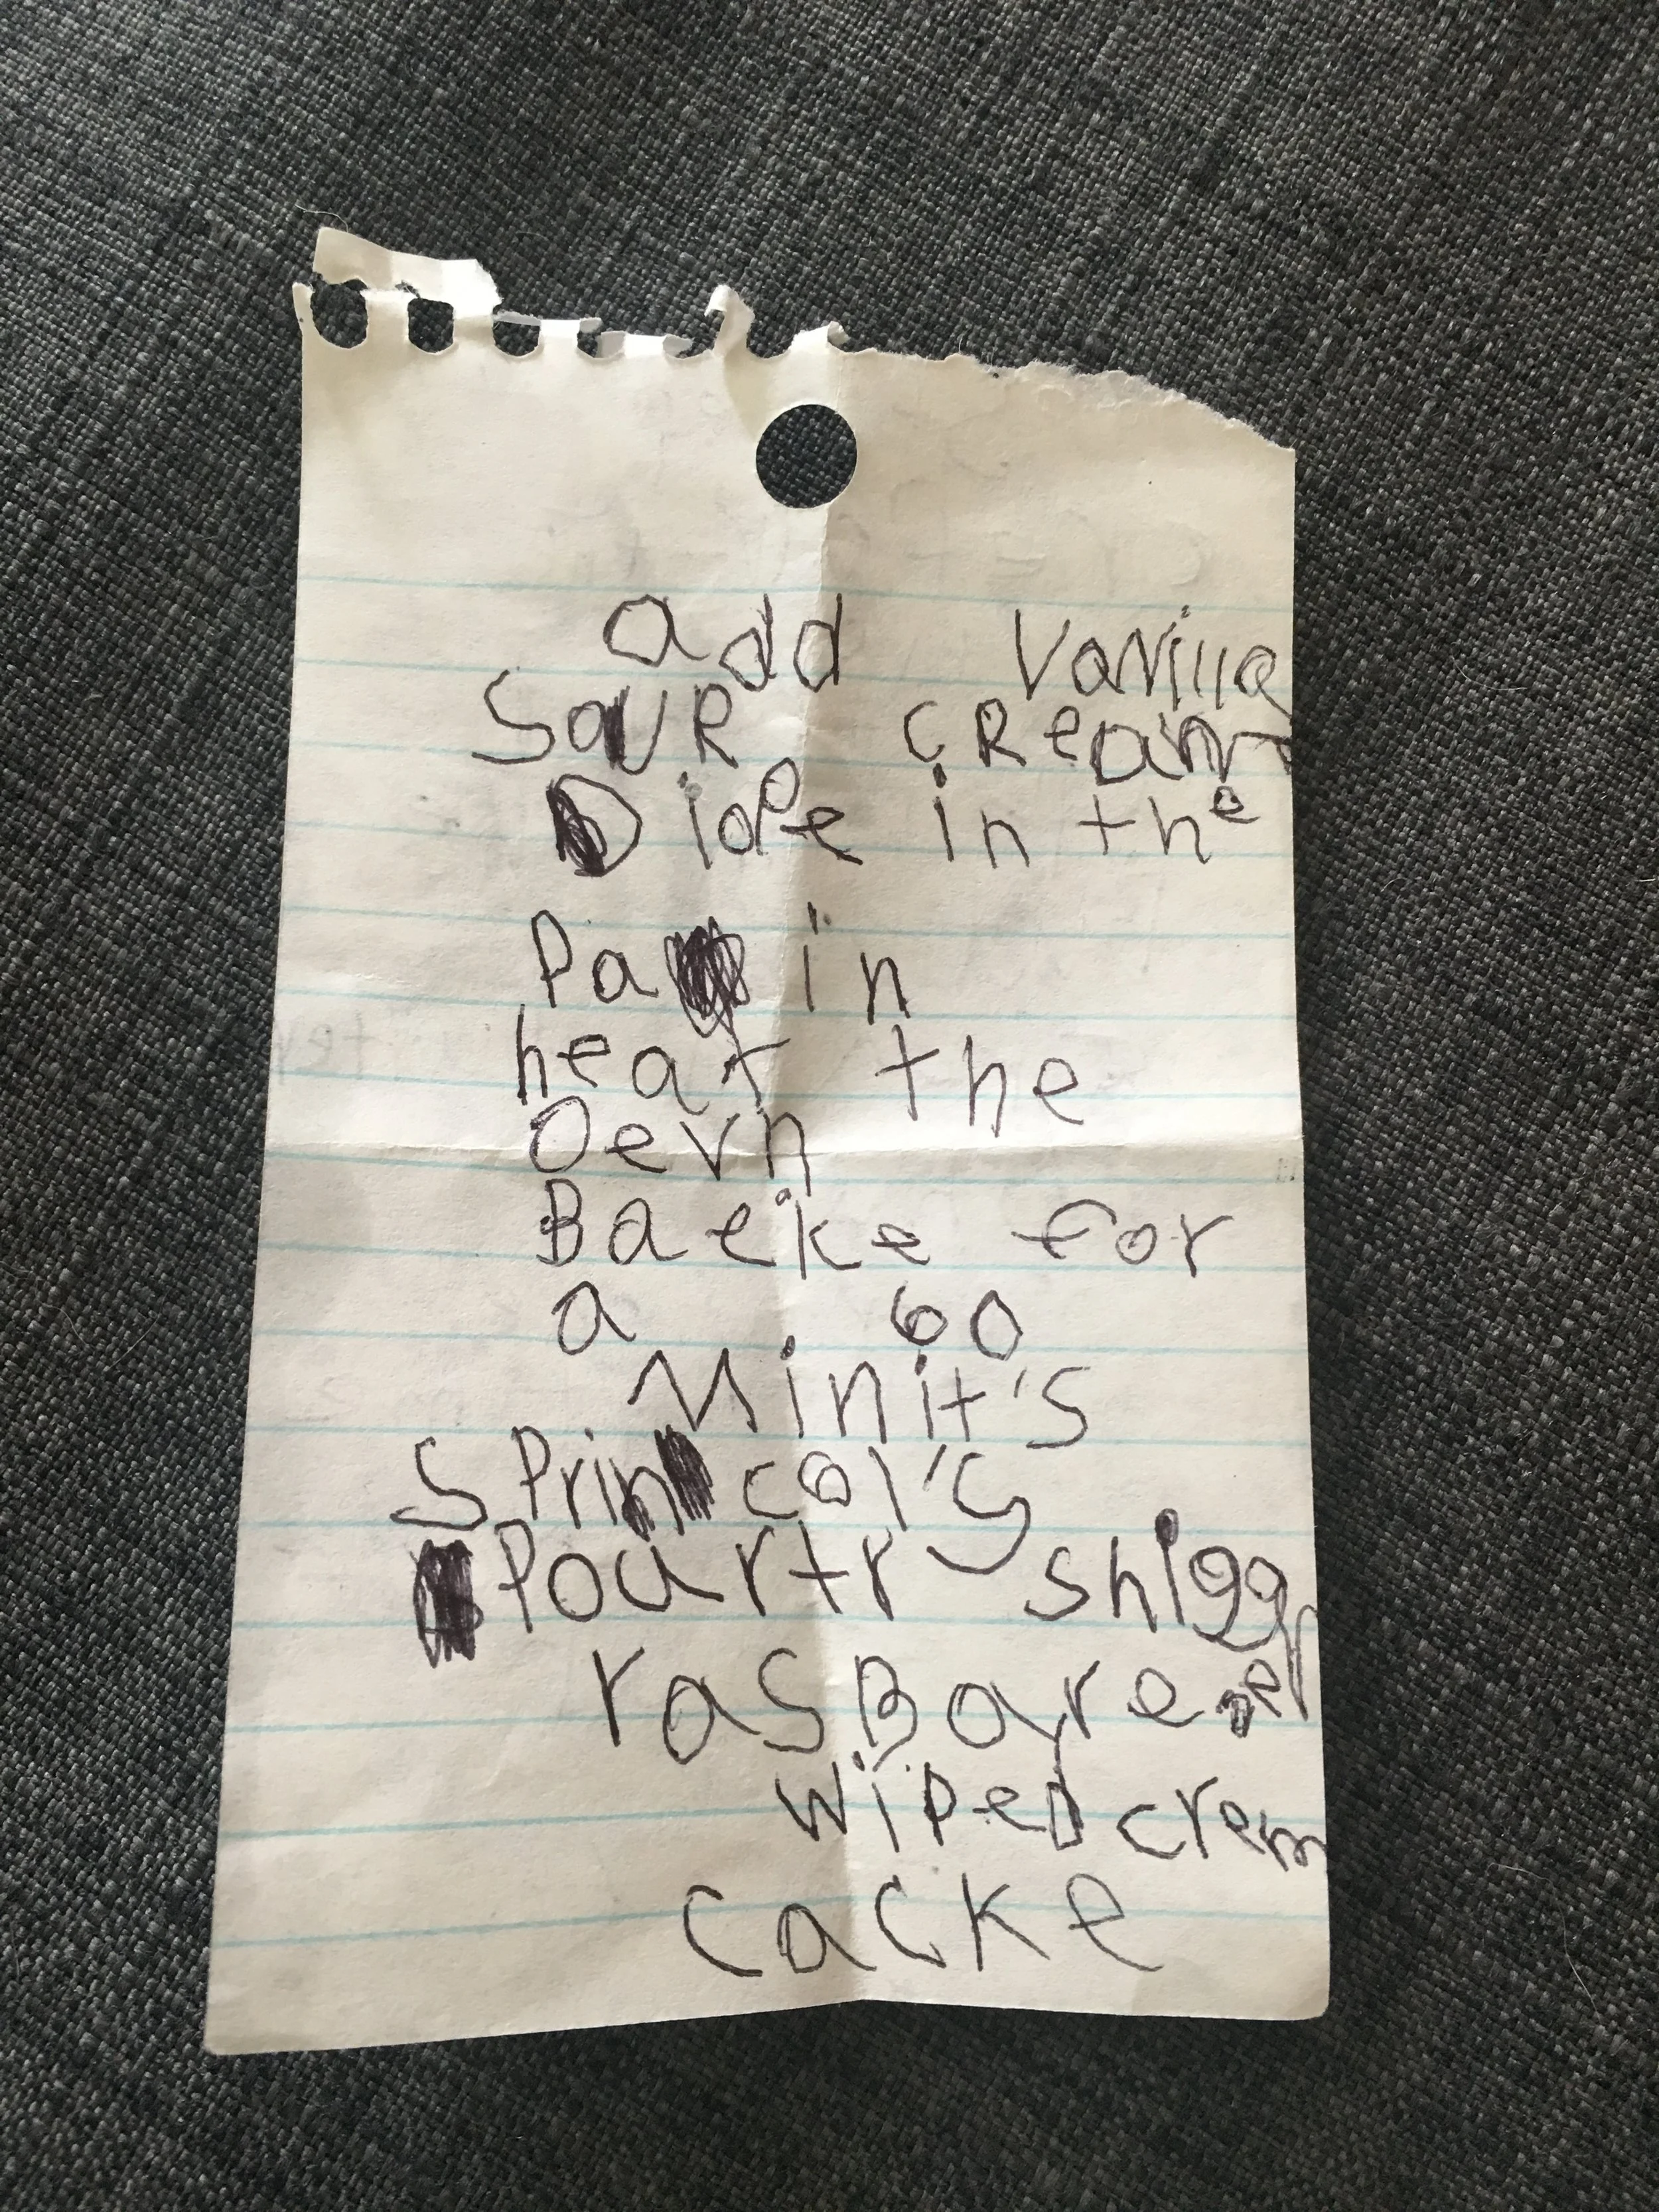 add Vanilla
Sour cream
Diope in the
Pa in
heat the
Oevn
Baeke for
a 60
Minit's
SPrincol's
Pourtr shigger
rasBare
wiped crem
cacke